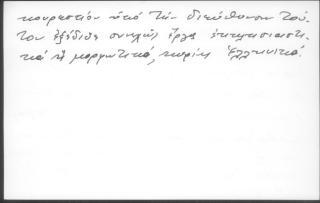 κουρεστίου ὑπό τήν διεύθυνσιν τού-
του ἐξέδιδε συνεχῶς ἔργα ἐκκλησιαστι-
κά ἤ μορφωτικά, κυρίως Ἑλληνικά.